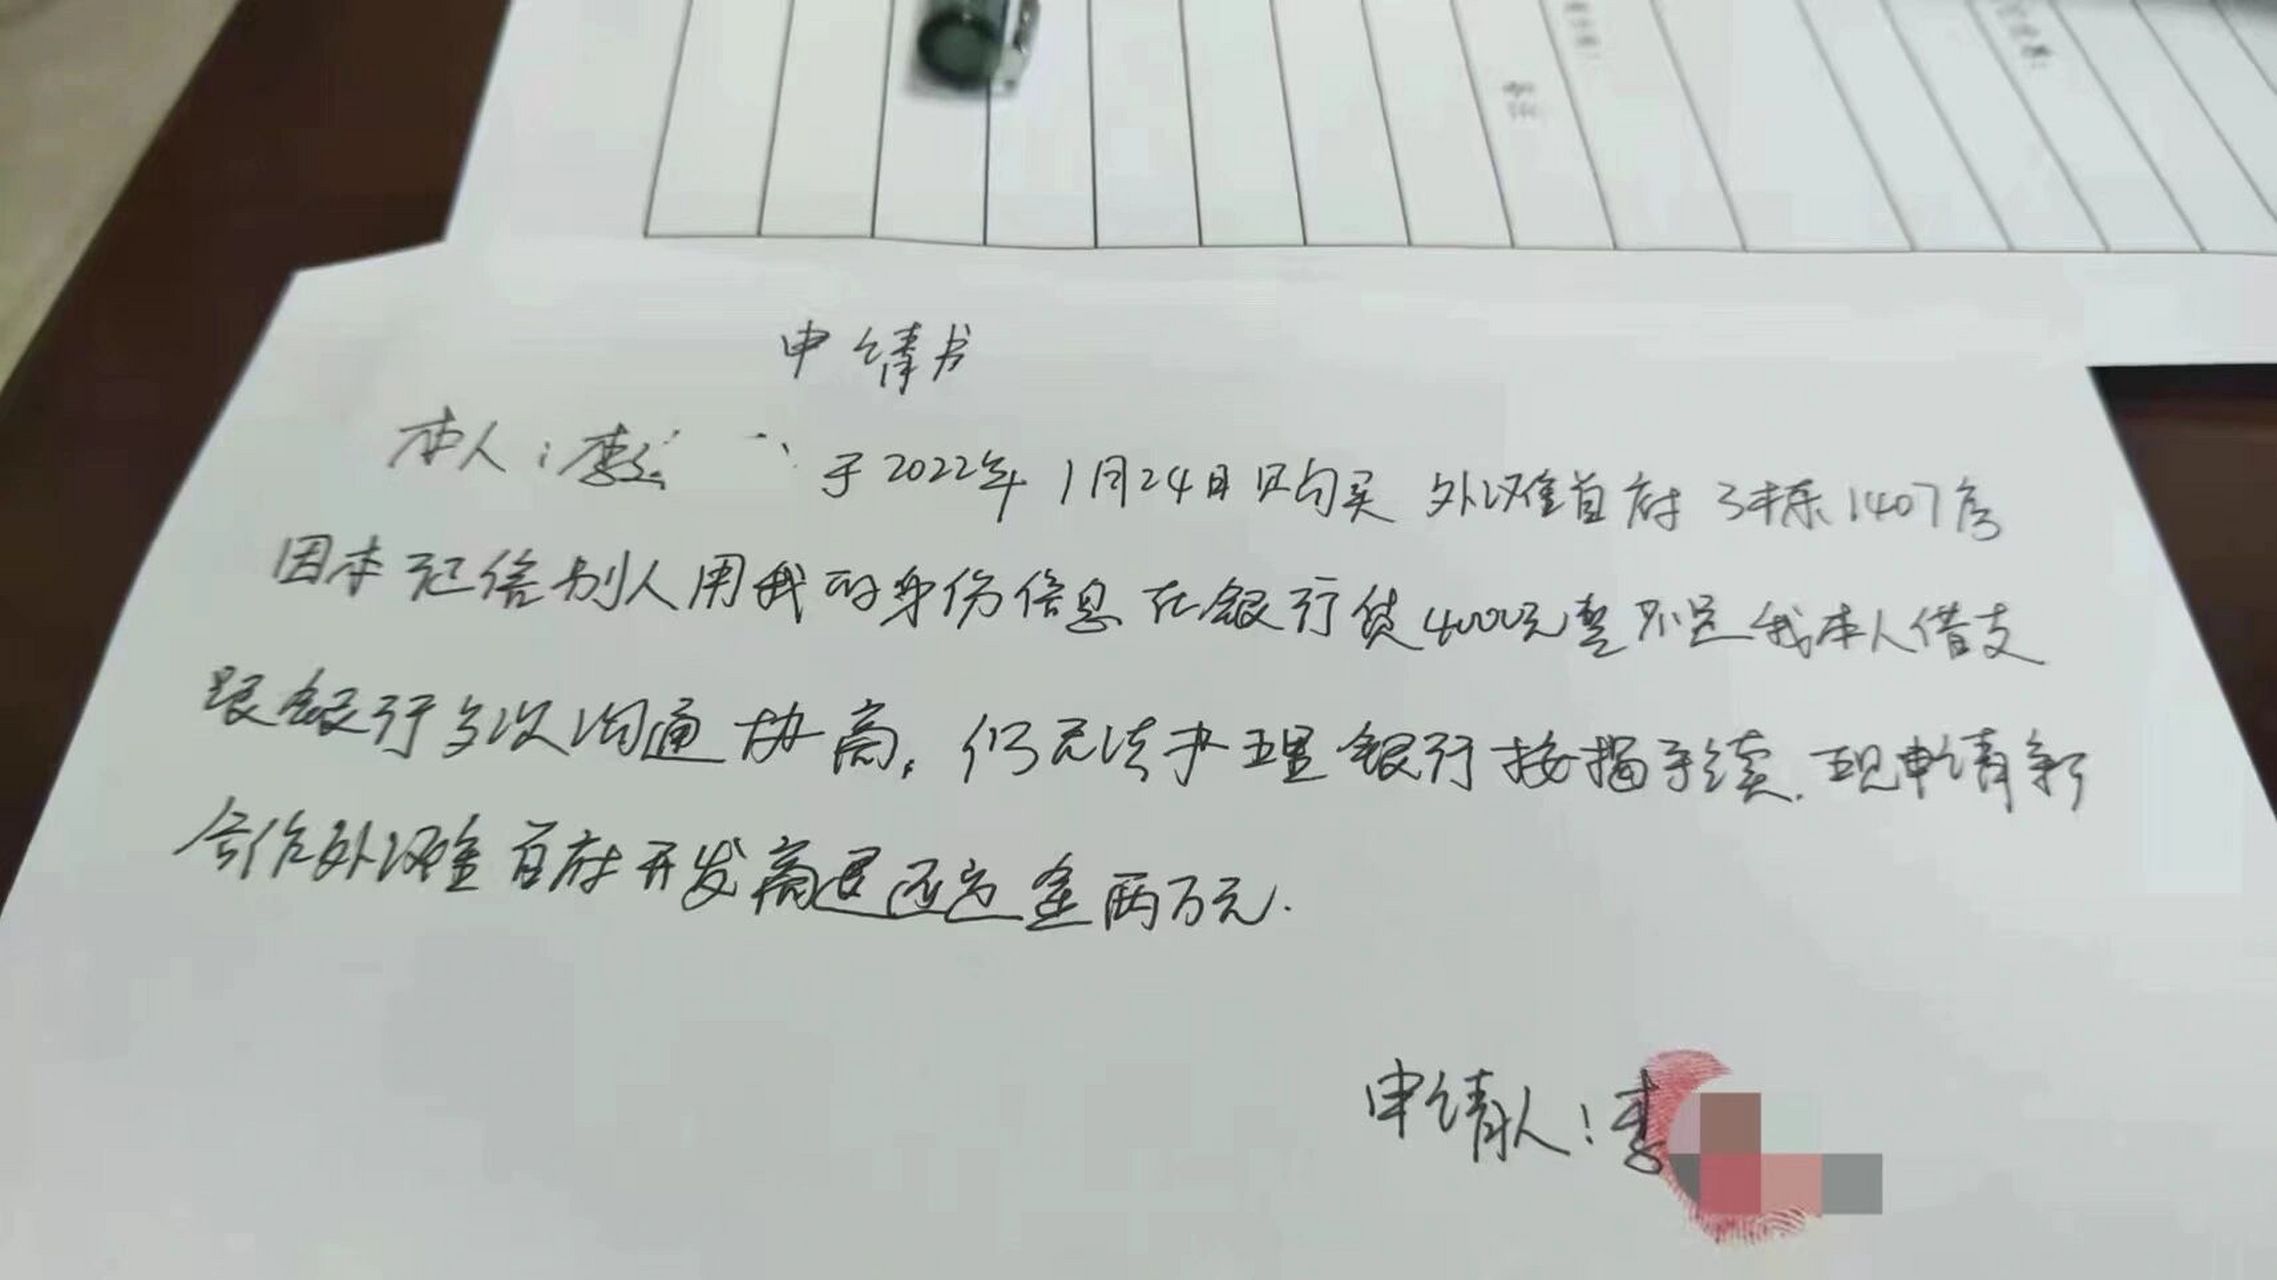 申请书
本人：李 于2022年1月24日购买 外滩首府 3栋1407房
因本 别人用我的身份信息在银行贷4000元整不是我本人借支
跟银行多次沟通协商，仍无法办理银行按揭手续.现申请新
合作外滩首府开发商退还定金两万元.
申请人：李